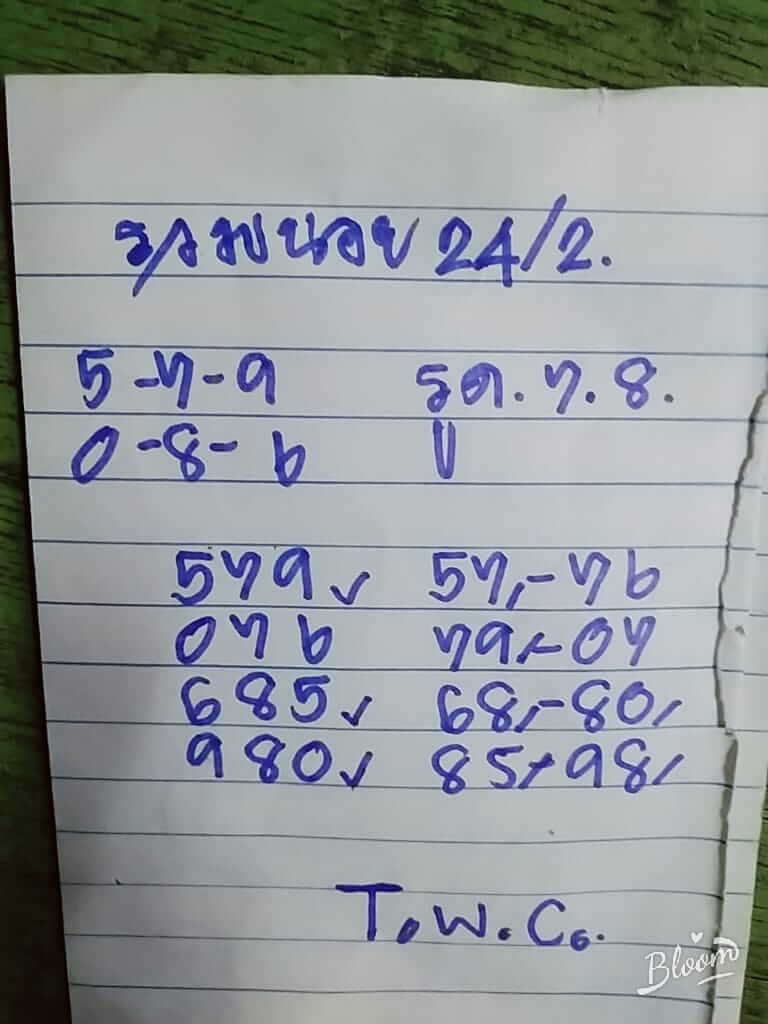 24/2.
5 -7-9 รด. 7. 8.
0 -8- 6
579✓ 57,-76
076 79,-07
685✓ 68,-80,
980✓ 85,-98,
T.W.Co.
Bloom